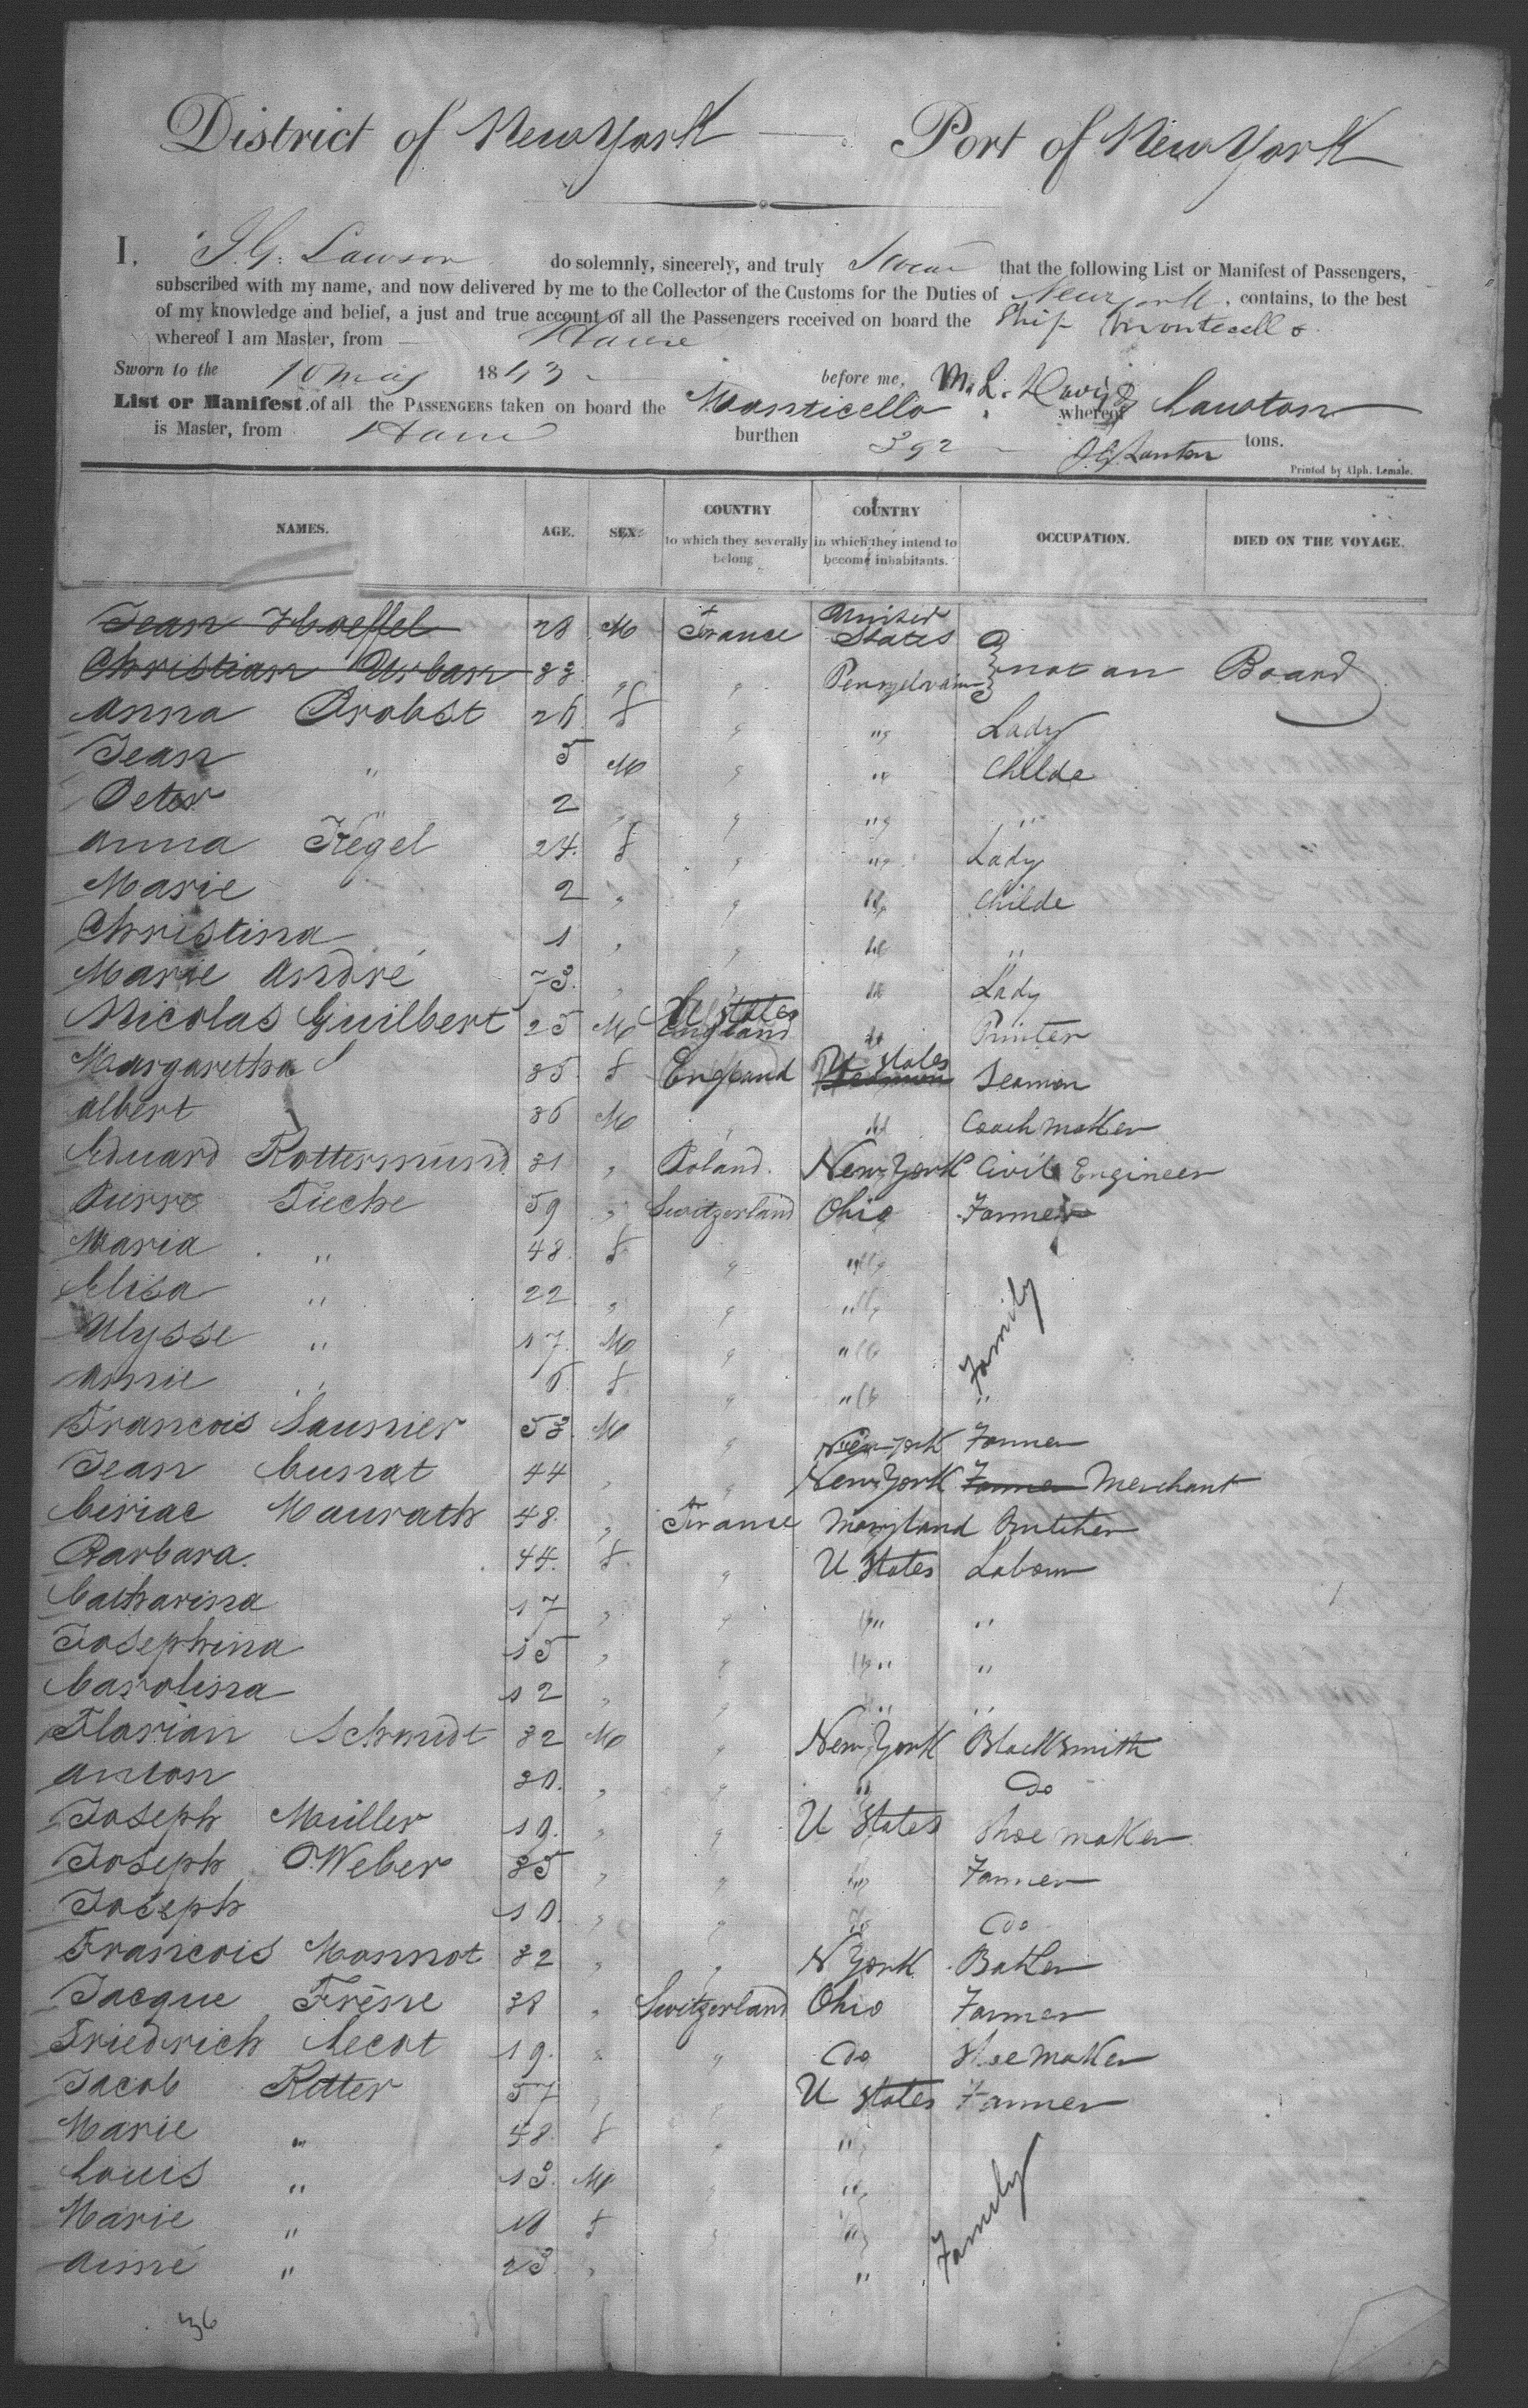 District of New York — Port of New York
I, J. G. Lawson do solemnly, sincerely, and truly Swear that the following List or Manifest of Passengers,
subscribed with my name, and now delivered by me to the Collector of the Customs for the Duties of New York, contains, to the best
of my knowledge and belief, a just and true account of all the Passengers received on board the Ship Monticello
whereof I am Master, from Havre
Sworn to the 10 May 1843 before me, M. L. Davis
List or Manifest of all the PASSENGERS taken on board the Monticello whereof Lawton
is Master, from Havre burthen 392 tons.
J G Lawton
Printed by Alph. Lemale.
NAMES. AGE. SEX. COUNTRY to which they severally belong COUNTRY in which they intend to become inhabitants. OCCUPATION. DIED ON THE VOYAGE.
Jean Hoeffel 28 M France United States
Christian Urban 33 " " Pensylvain not on Board
Anna Probst 26 f " " Lady
Jean " 5 M " " Childe
Peter " 2 " " " "
Anna Kegel 24. f " " Lady
Marie 2 " " " Childe
Christina 1 " " " "
Marie André 73. " " " Lady
Nicolas Guilbert 25 M England U States do Printer
Margaretha 35 f England U States Seaman
Albert 36 M " " Coach maker
Eduard Rottermund 31 " Poland. New York Civil Engineer
Pierre Tüche 59 " Switzerland Ohio Farmer
Maria " 48. f " "
Elisa " 22 " " "
Ulysse " 17. M " " Family
Annie " 6 f " " "
Francois Saunier 53 M " New York Farmer
Jean Cunat 44 " " New York Farmer Merchant
Ciriac Maurath 48. " France Maryland Butcher
Barbara. 44. f. " U States Labour
Catharina 17 " " " "
Josephina 15 " " " "
Carolina 12 " " " "
Florian Schmidt 32 M " New York Blacksmith
Anton 30. " " " Do
Joseph Müller 19. " " U States Shoe maker
Joseph Weber 35 " " " Farmer
Joseph 10. " " do Do
Francois Monnot 32 " " N York Baker
Jacque Frêne 38 " Switzerland Ohio Farmer
Friedrich Secot 19. " " Do Shoe Maker
Jacob Ritter 57 " " U States Farmer
Marie " 48. f " "
Louis " 13. M " "
Marie " 18 f " " Family
Aimé " 23 " "
36